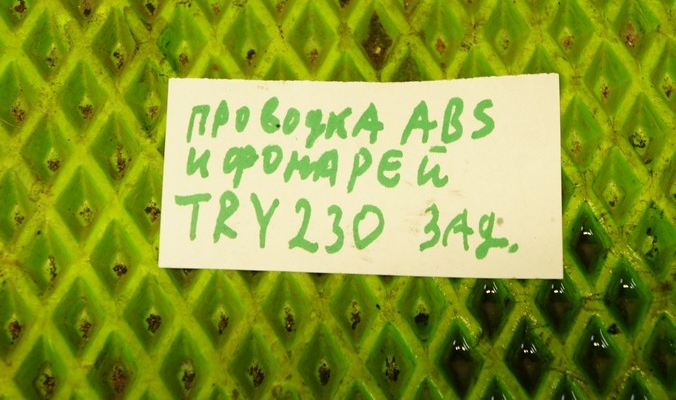 ПРОВОДКА ABS
И ФОНАРЕЙ
TRY230 ЗАД.